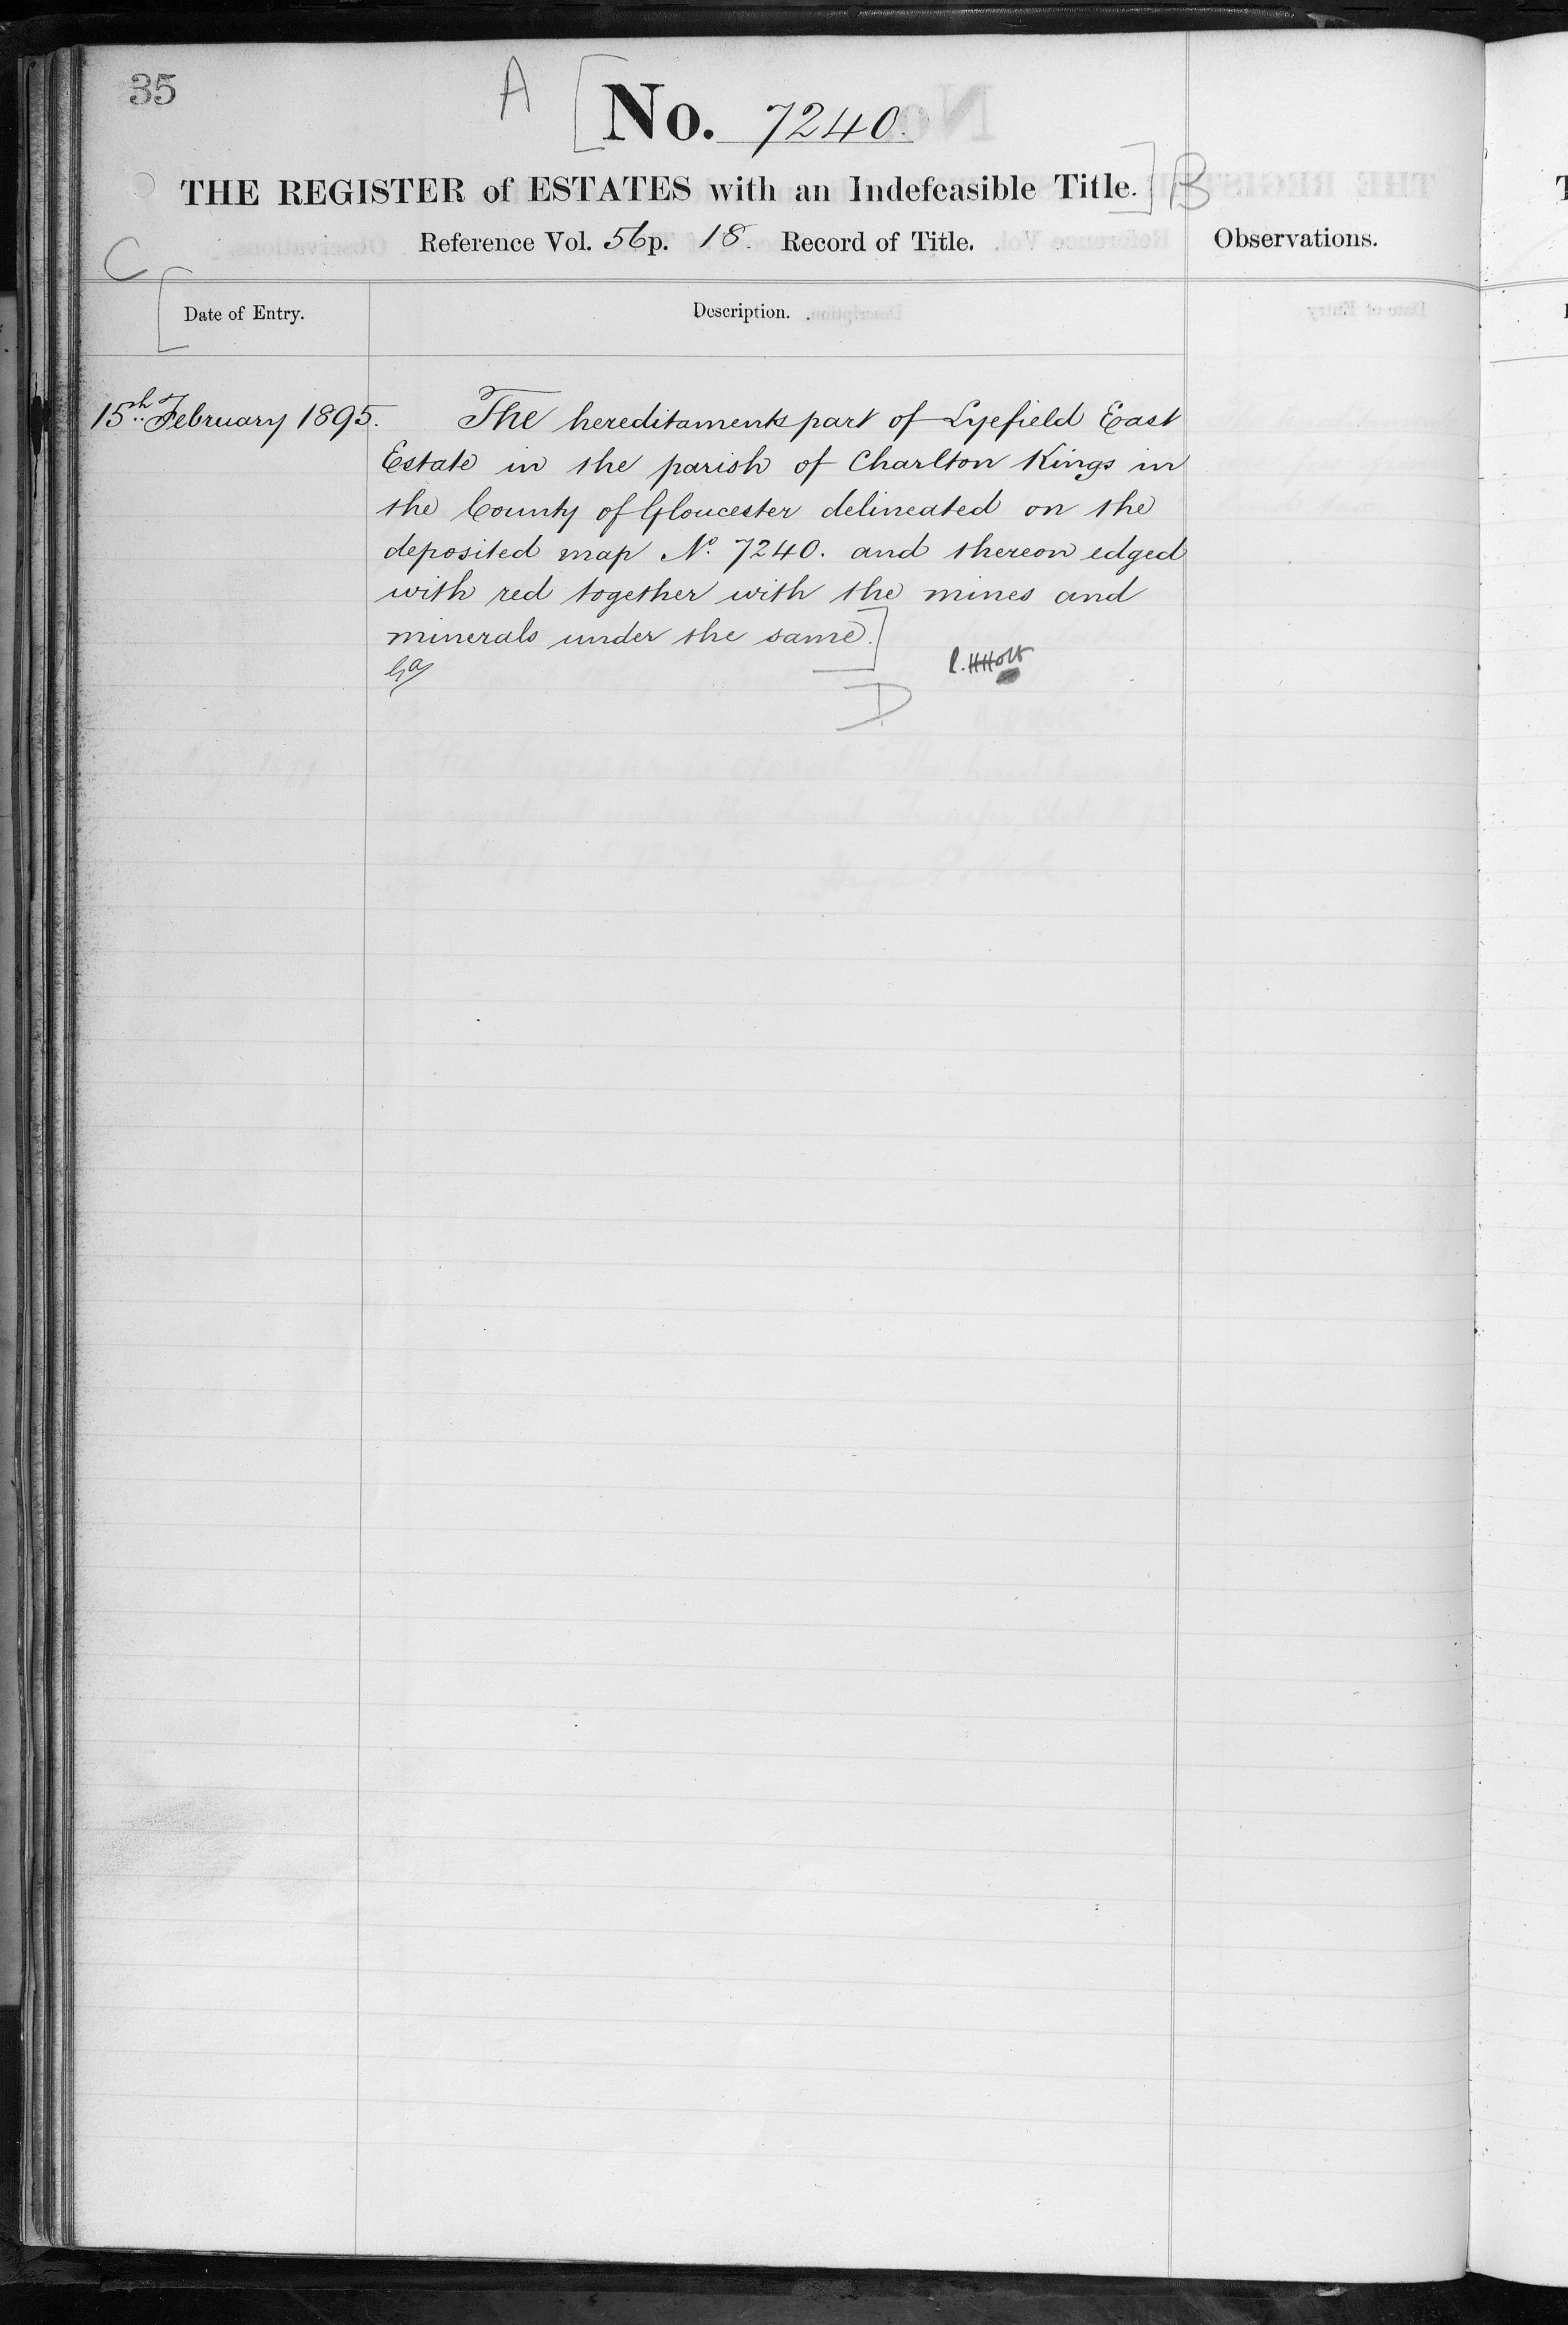 35
A [ No. 7240.
THE REGISTER of ESTATES with an Indefeasible Title. ] B
Reference Vol. 56 p. 18. Record of Title.
Observations.
C [
Date of Entry.
Description.
15th February 1895.
The hereditaments part of Lyefield East
Estate in the parish of Charlton Kings in
the County of Gloucester delineated on the
deposited map No. 7240. and thereon edged
with red together with the mines and
minerals under the same. ]
R.H Holt
D